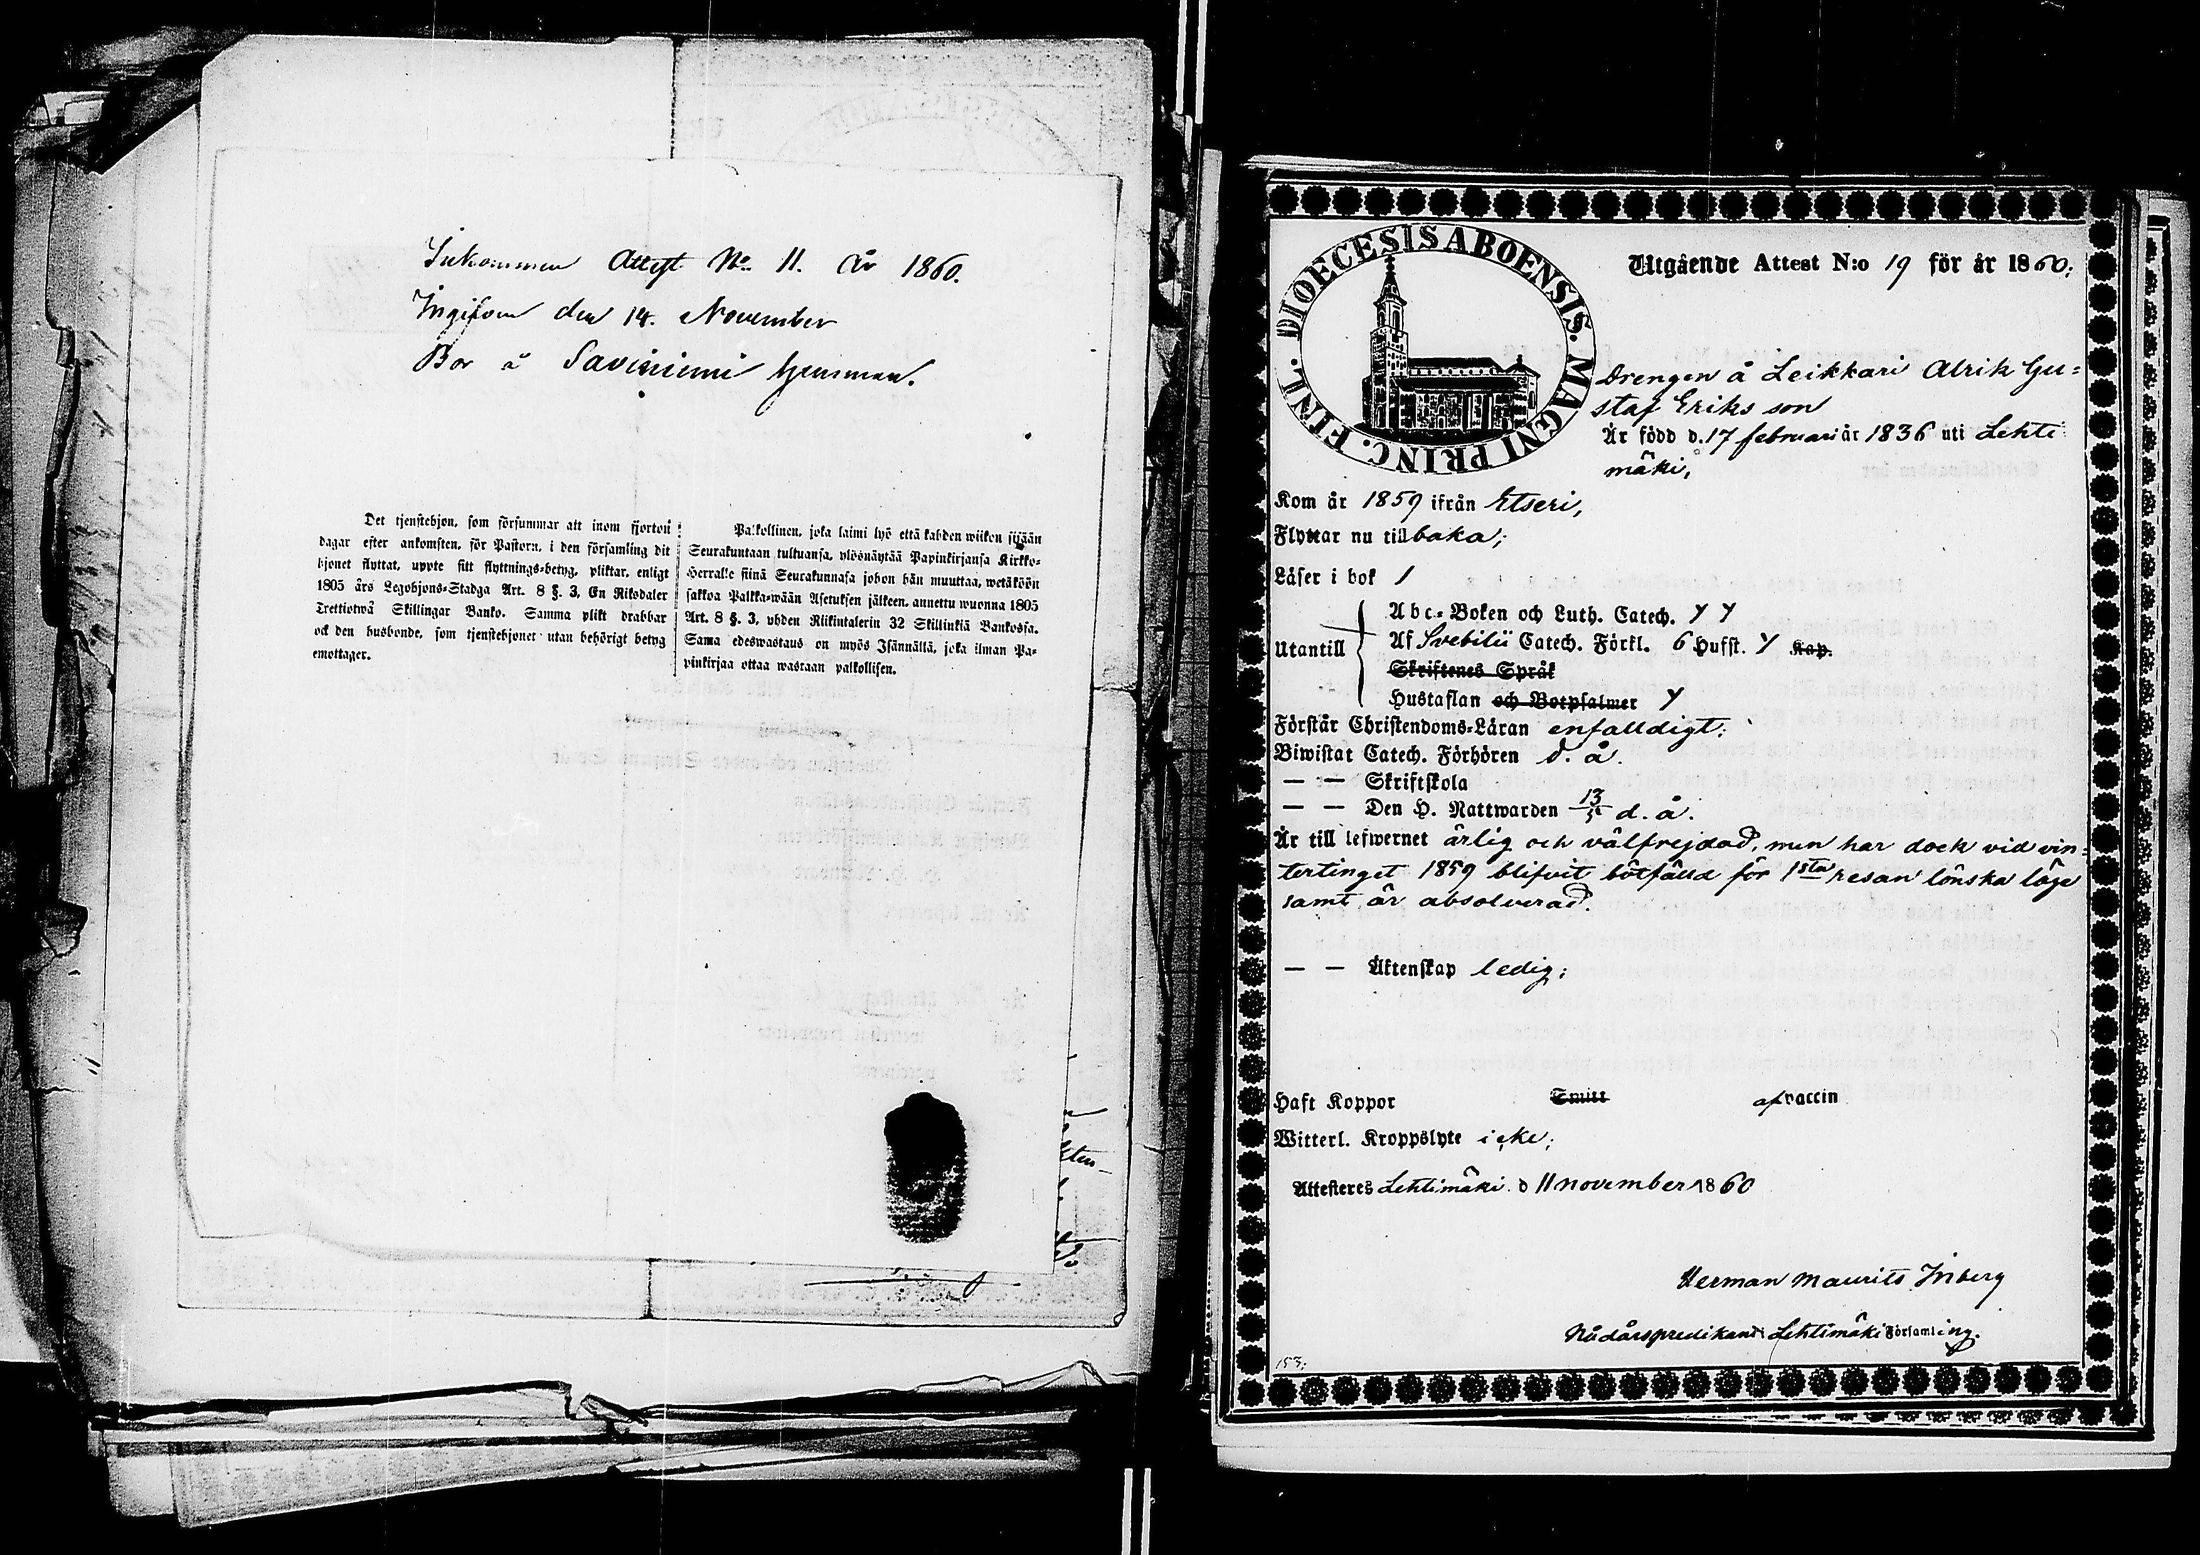 Inkommen Attest No 11. År 1860.
Ingifven den 14. November
Bor å Saviniemi hemman.
Det tjenstehjon, som försummar att inom fjorton
dagar efter ankomsten, för Pastorn, i den församling dit
hjonet flyttat, uppte sitt flyttnings-betyg, pliktar, enligt
1805 års Legohjons-Stadga Art. 8 §. 3, En Riksdaler
Trettiotwå Skillingar Banko. Samma plikt drabbar
ock den husbonde, som tjenstehjonet utan behörigt betyg
emottager.
Palkollinen, joka laimi lyö että kahden wiikon sisään
Seurakuntaan tultuansa, ylösnäytää Papinkirjansa Kirkko-
Herralle siinä Seurakunnasa johon hän muuttaa, wetäköön
sakkoa Palkka-wään Asetuksen jälkeen, annettu wuonna 1805
Art. 8 §. 3, yhden Riikintalerin 32 Skillinkiä Bankossa.
Sama edeswastaus on myös Isännällä, joka ilman Pa-
pinkirjaa ottaa wastaan palkollisen.
DIOECESIS ABOENSIS. MAGNI PRINC. FINL.
Utgående Attest N:o 19 för år 1860;
Drengen å Leikkari Alrik Gu=
staf Eriks son
Är född d. 17 februari år 1836 uti Lehti
mäki,
Kom år 1859 ifrån Etseri,
Flyttar nu tillbaka;
Läser i bok 1
Utantill
Abc-Boken och Luth. Catech. Y Y
Af Svebilii Catech. Förkl. 6 Hufst. Y Kap.
Skriftenes Språk
Hustaflan och Botpsalmer Y
Förstår Christendoms-Läran enfalldigt;
Biwistat Catech. Förhören d. å.
— — Skriftskola
— — Den H. Nattwarden 13/5 d. å.
Är till lefwernet ärlig och välfrejdad, men har dock vid vin=
tertinget 1859 blifvit bötfälld för 1sta resan lönska läge
samt är absolverad.
— — Äktenskap ledig;
Haft Koppor Smitt af vaccin
Witterl. Kroppslyte icke;
Attesteres Lehtimäki. d 11 november 1860
Herman Maurits Inberg
Nådårspredikant i Lehtimäki Församling.
153;